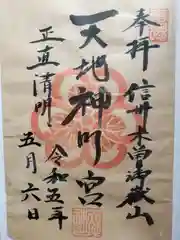 奉拝
信州木曽御嶽山
天地神明宮
令和五年
正直清明
五月六日